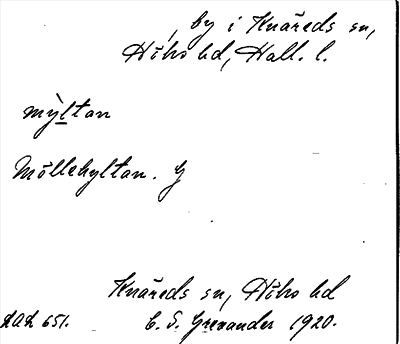 , by i Knäreds sn,
Höks hd, Hall. l.
mỳltan
Möllehyltan. G
Knäreds sn, Höks hd
LAL 651. C. S. Grexander 1920.